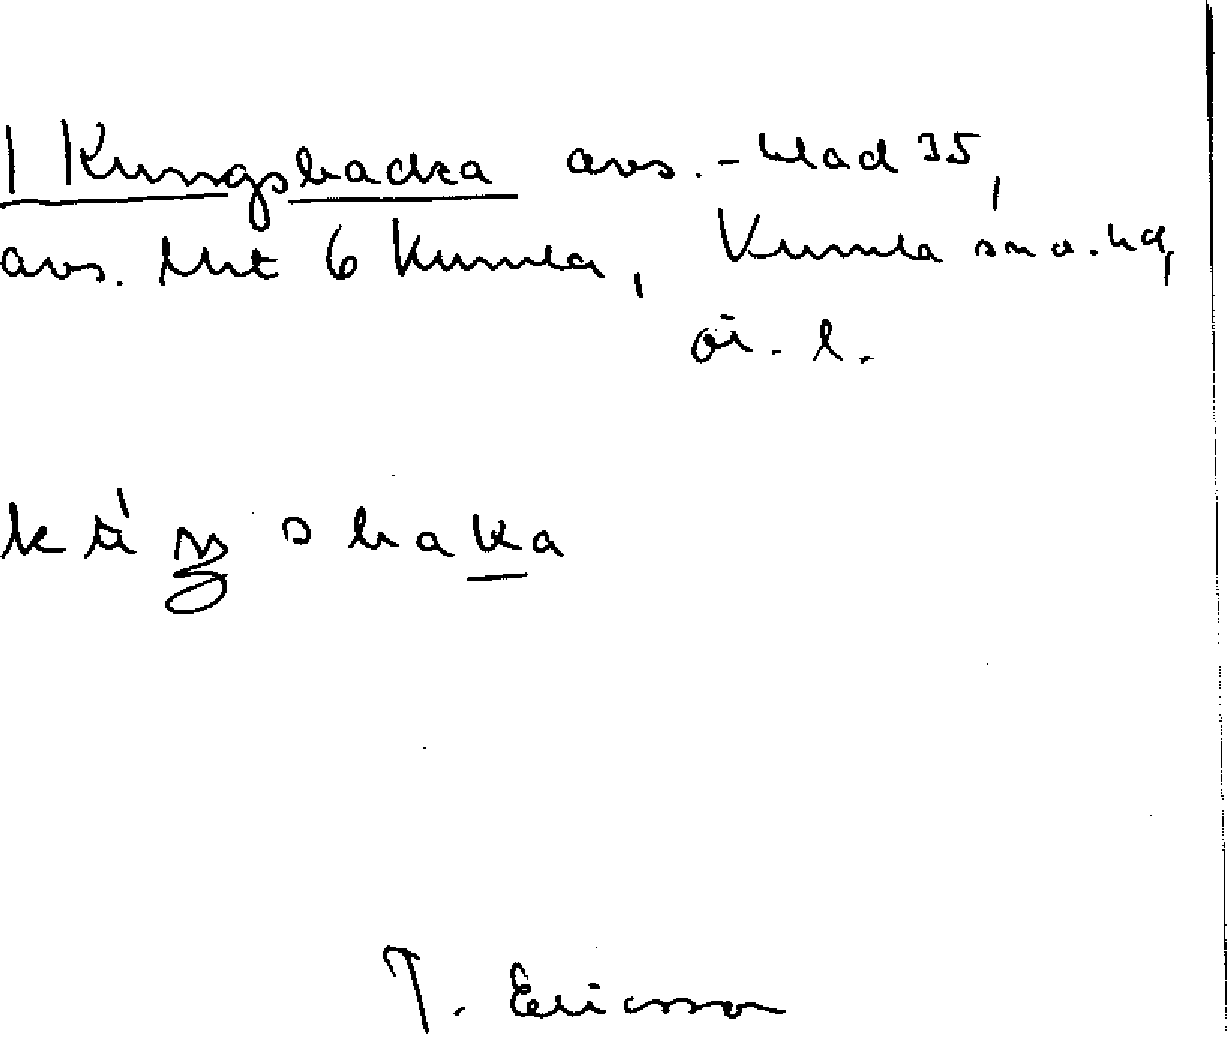 1 Kungsbacka avs. - blad 35,
avs. litt 6 Kumla, Kumla sn o. hd,
ör. l.
T. Ericsson